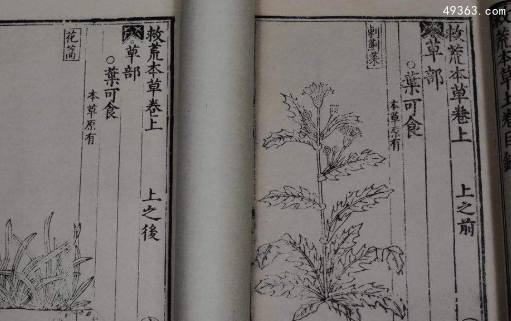 49363.com
救荒本草上卷目錄
救荒本草卷上 上之前
草部
○葉可食
本草原有
刺薊菜
救荒本草卷上 上之後
草部
○葉可食
本草原有
花蒿